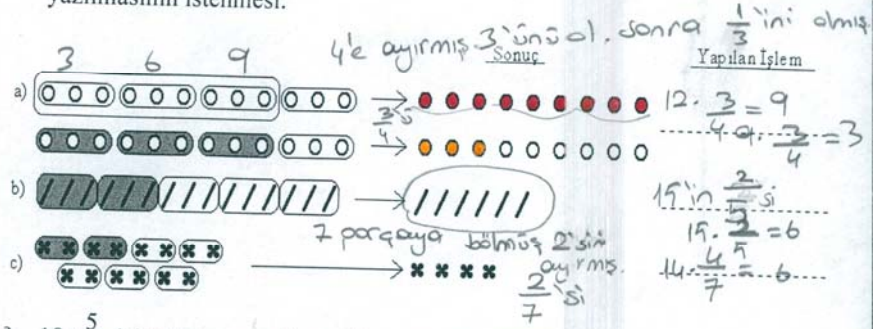 yazılmasının istenmesi.
4'e ayırmış 3'ünü al. sonra 1/3'ini almış
3 6 9
Sonuç
Yapılan İşlem
a)
3/4'ü
12. 3/4 = 9
9. 3/4 = 3
b)
15'in 2/5 si
15. 2/5 = 6
7 parçaya bölmüş 2'sini ayırmış.
c)
2/7'si
14. 4/7 = 6
5